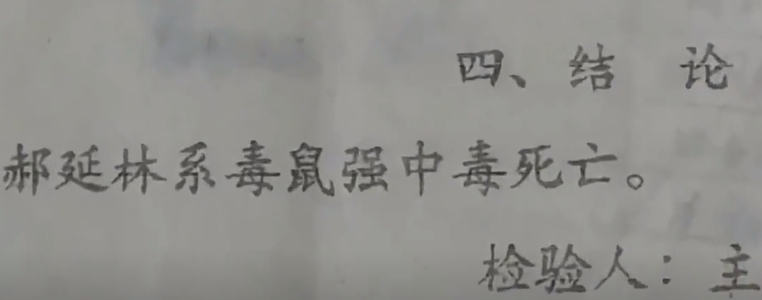 四、结 论
郝延林系毒鼠强中毒死亡。
检验人：主